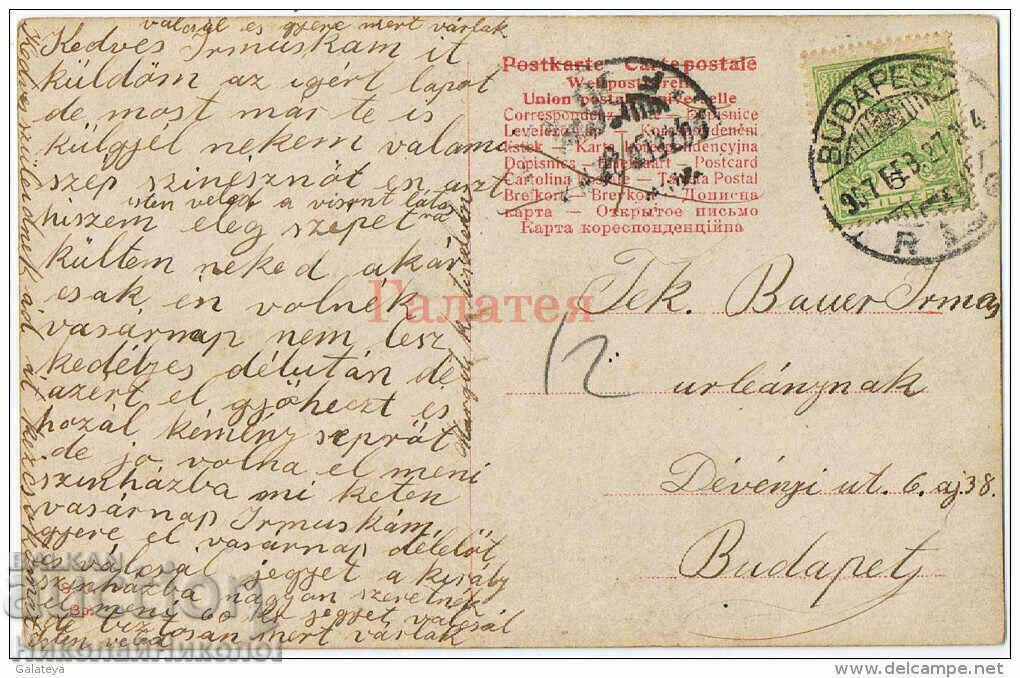 valósál es gyere mert várlak
Kedves Irmuskám it
küldöm az igért lapot
de most már te is
külgyél nekem valami
szép szinésznöt en azt
isten veled a viront latás
hiszem elég szépet
kültem neked akár
csak én volnék
vasárnap nem lesz
kedélyes délután de
azért el gyöheczt es
hozál kémény seprät
de jo volna el meni
szinházba mi keten
vasárnap Irmuskám,
gyere el vasárnap délelöt
es valosál jegyet a király
szinházba nagyon szeretnék
el meni 60 kr jegyet valosál
de biztosan mert várlak
isten veled
Kedves szüleidnek ád át
Postkarte Carte postale
Weltpostverein
Union postale universelle
Correspondenz-Karte – Dopisnice
Levelező-Lap – Korespondenční
lístek – Karta korespondencyjna
Dopisnica – Briefkaart – Postcard
Cartolina postale – Tarjeta Postal
Brefkort – Brevkort – Дописна
карта – Открытое письмо
Карта кореспонденційна
BUDAPEST
907 FEB. 27
6
FILL
Галатея
Tek. Bauer Irma
urleánynak
12
Dévényi ut. 6. aj. 38.
Budapest
BALKAN
auction
НИКОЛАЙ НИКОЛОВ
Galateya
www.delcampe.net